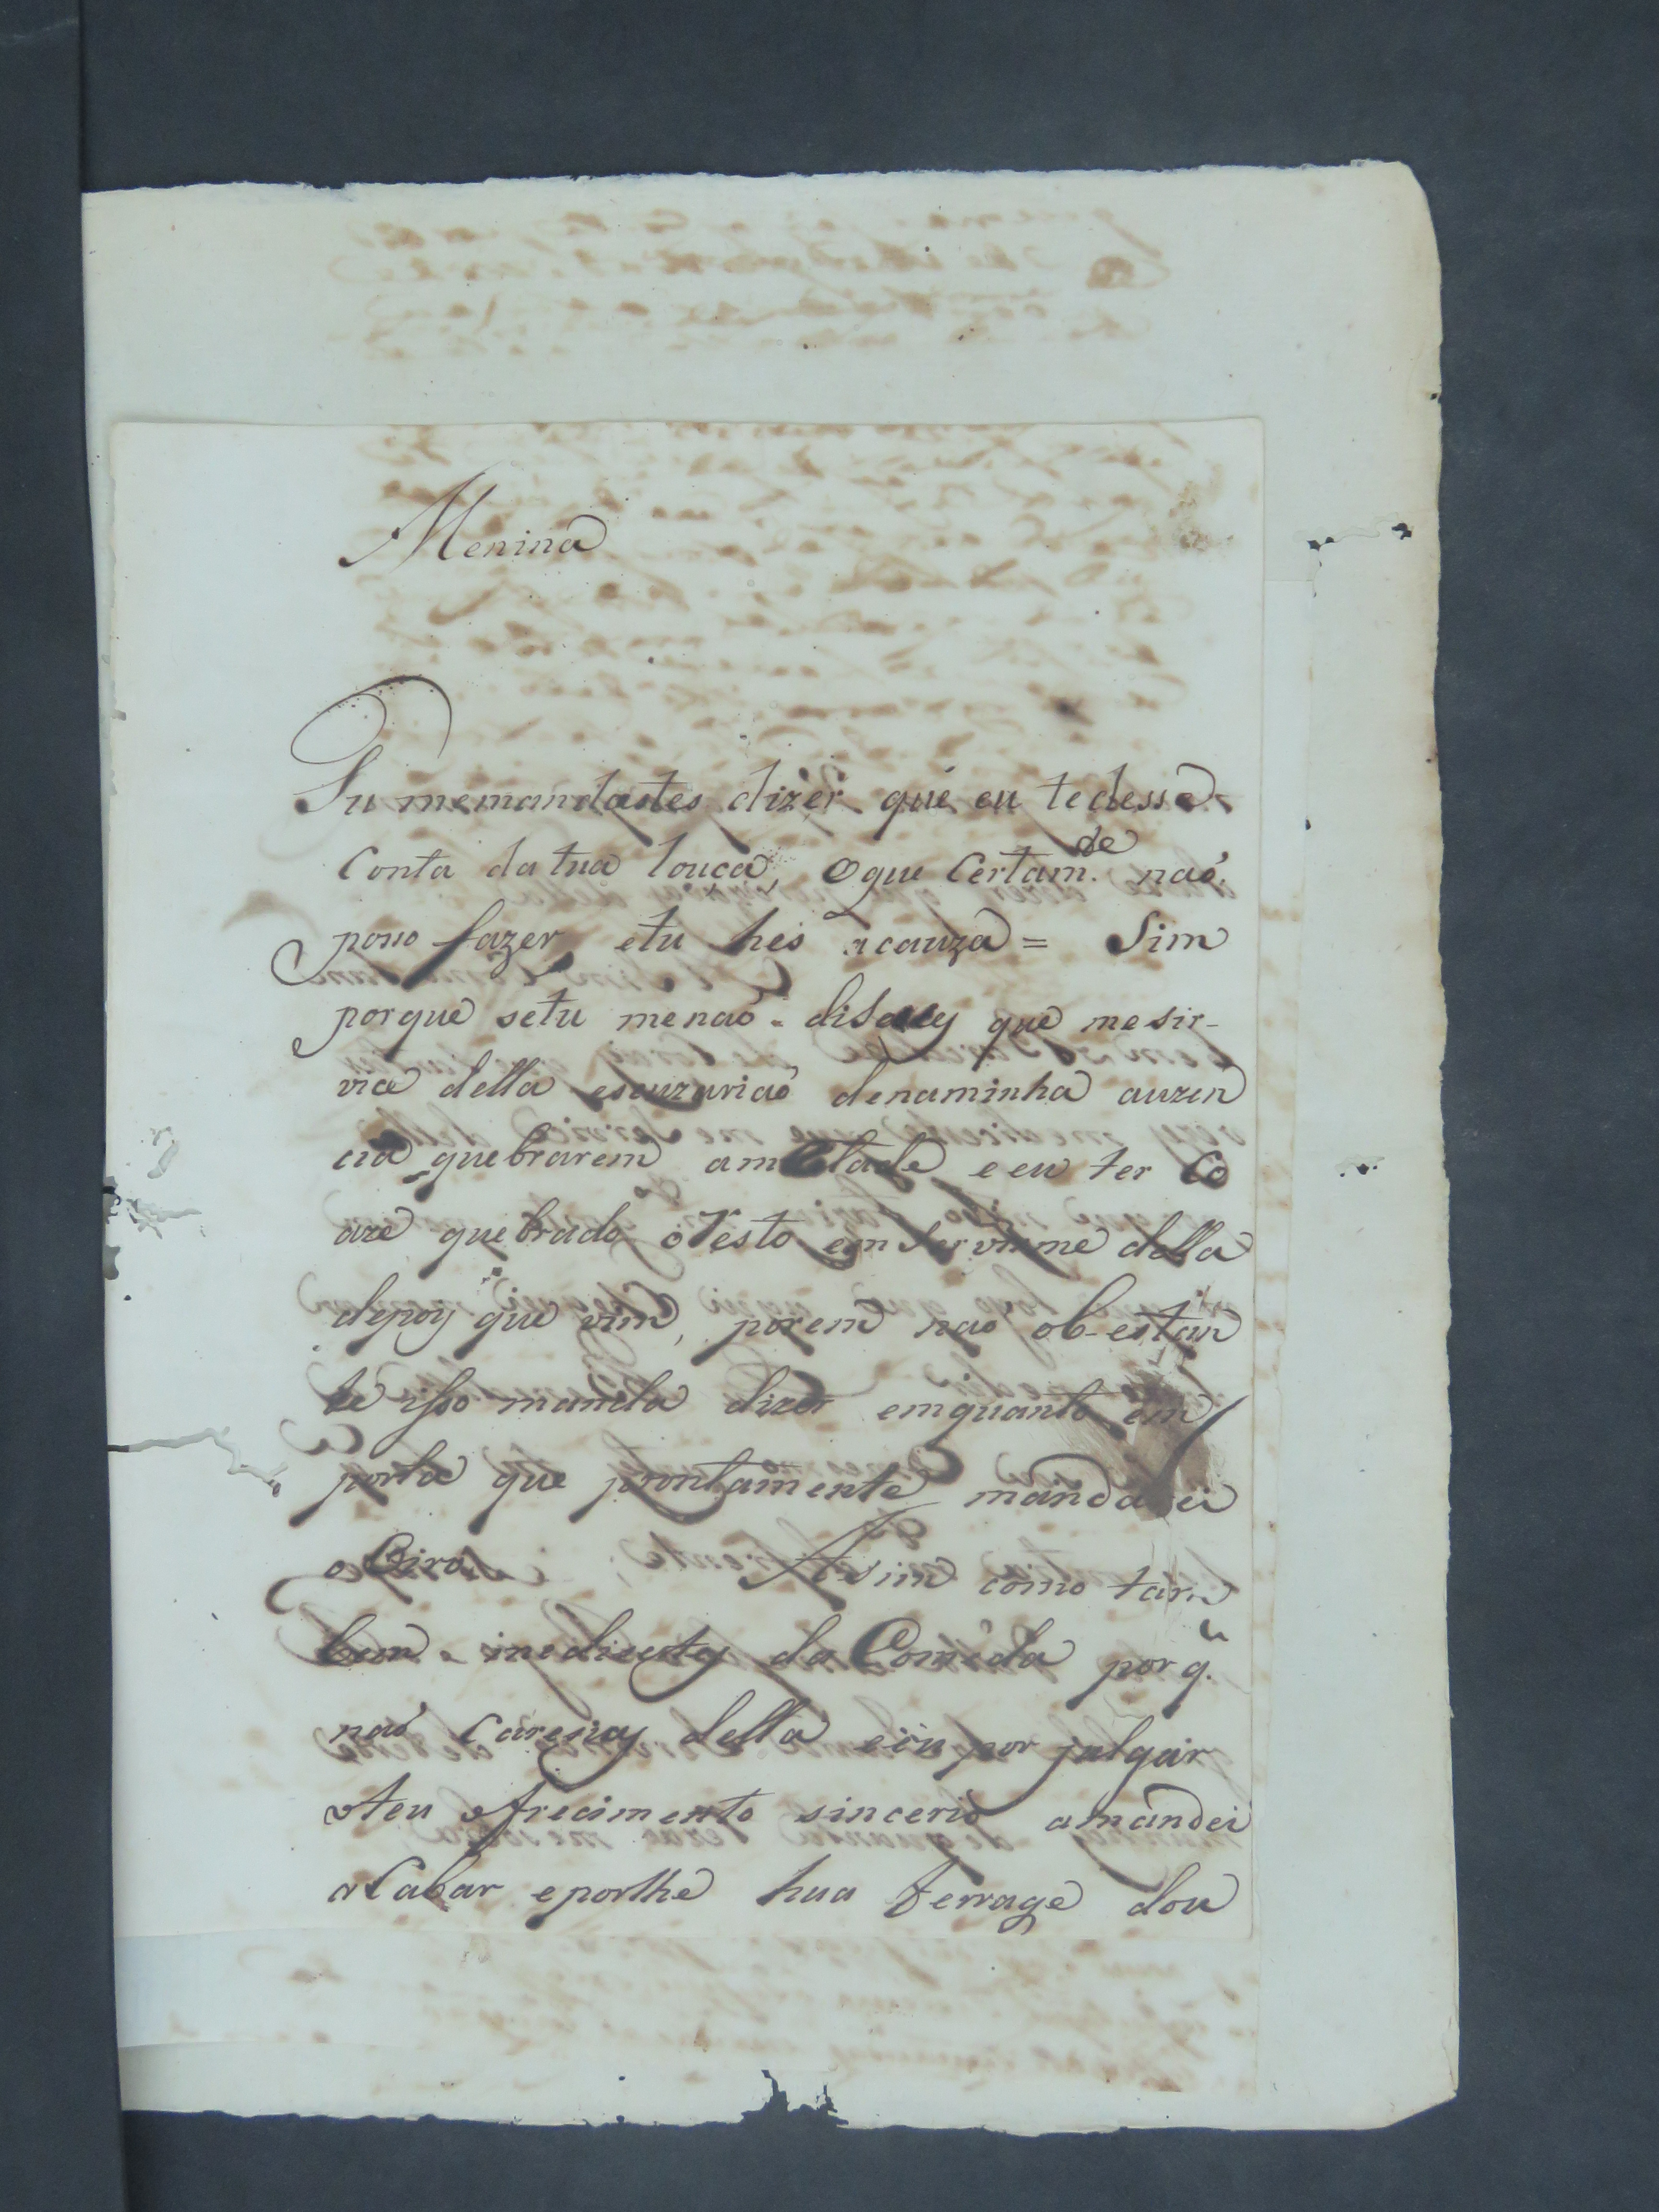 Menina
Tu memandastes dizer que eu tedesse
Conta datua louca, Oque Certam.de naó
posso fazer etu hes acauza = Sim
porque setu menaó disecey que mesir-
via della escuzariaó denaminha auzen
cia quebrarem ametade e eu ter Co
aze quebrado oresto em servirme della
depoy que vim, porem nao ob-estan
te isso manda dizer emquanto em
porta que prontamente mandarei
o Cira. Asim como tam
bem medicestey da Comeda porq.e
naó caresiay della eeu por julgar
oteu ofrecimento sincerio amandei
acabar eporlhe hua ferrage dou